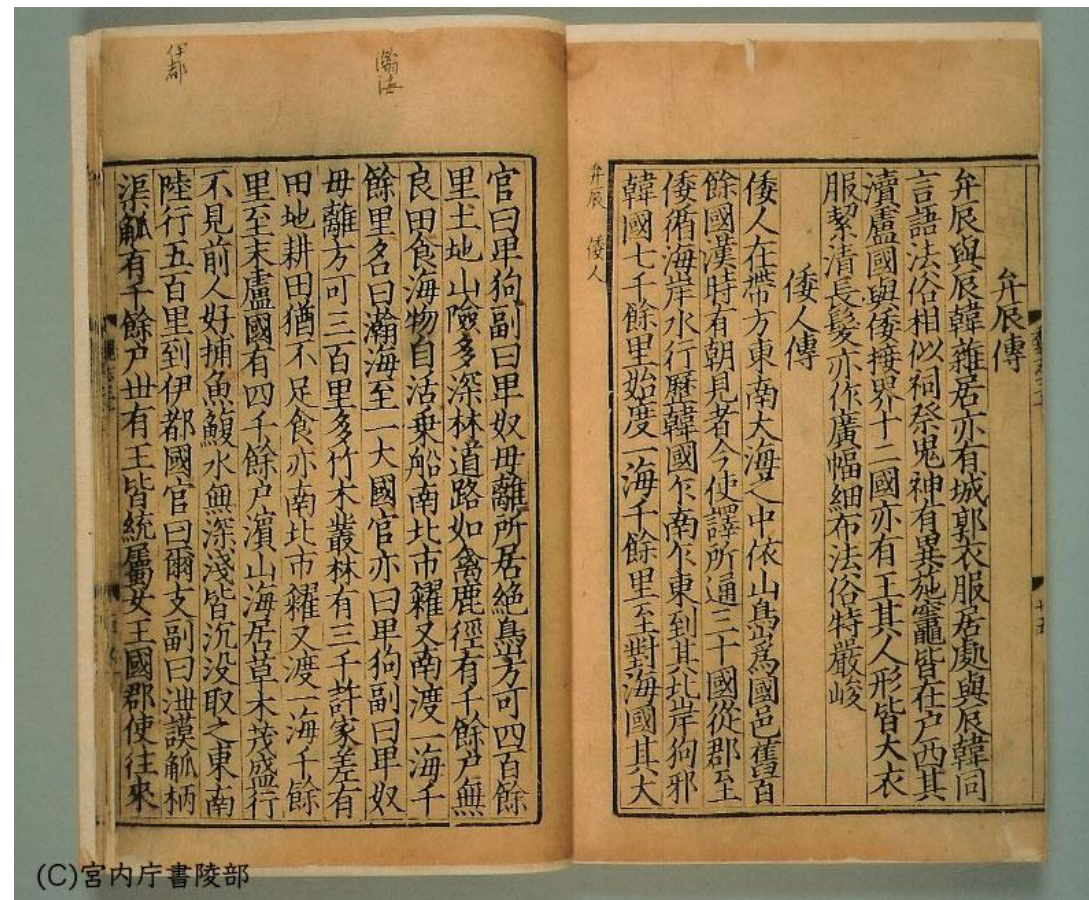 弁辰傳
弁辰與辰韓雜居亦有城郭衣服居處與辰韓同
言語法俗相似祠祭鬼神有異施竈皆在户西其
瀆盧國與倭接界十二國亦有王其人形皆大衣
服絜清長髮亦作廣幅細布法俗特嚴峻
倭人傳
倭人在帶方東南大海之中依山㠀爲國邑舊百
餘國漢時有朝見者今使譯所通三十國從郡至
倭循海岸水行歷韓國乍南乍東到其北岸狗邪
韓國七千餘里始度一海千餘里至對海國其大
弁辰 倭人
瀚海
伊都
官曰卑狗副曰卑奴毋離所居絶㠀方可四百餘
里土地山險多深林道路如禽鹿徑有千餘户無
良田食海物自活乗船南北市糴又南渡一海千
餘里名曰瀚海至一大國官亦曰卑狗副曰卑奴
毋離方可三百里多竹木叢林有三千許家差有
田地耕田猶不足食亦南北市糴又渡一海千餘
里至末盧國有四千餘户濵山海居草木茂盛行
不見前人好捕魚鰒水無深淺皆沉没取之東南
陸行五百里到伊都國官曰爾支副曰泄謨觚柄
渠觚有千餘户丗有王皆統屬女王國郡使往來
(C)宮内庁書陵部